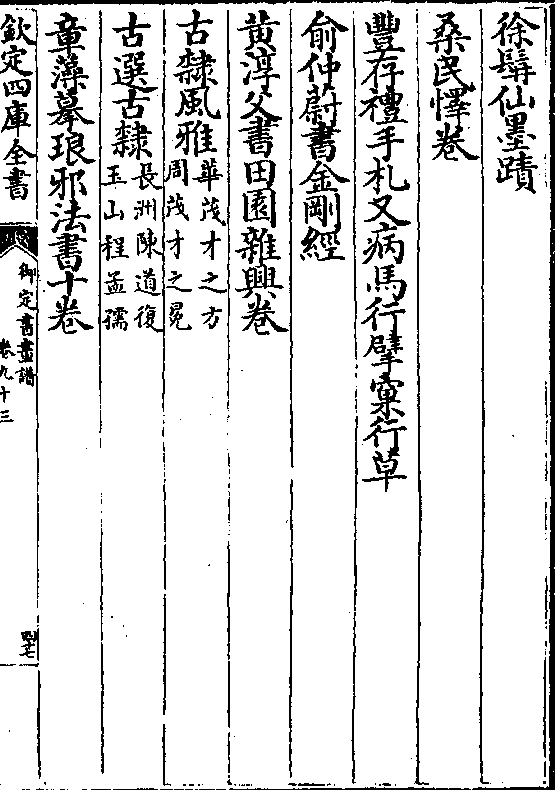 徐髯仙墨蹟
桑民懌卷
豐存禮手札又病馬行擘窠行草
俞仲蔚書金剛經
黄淳父書田園雜興卷
古隸風雅華茂才之方
周茂才之冕
古選古隸長洲陳道復
玉山程孟孺
章藻摹琅邪法書十卷
欽定四庫全書
御定書畫譜
卷九十三